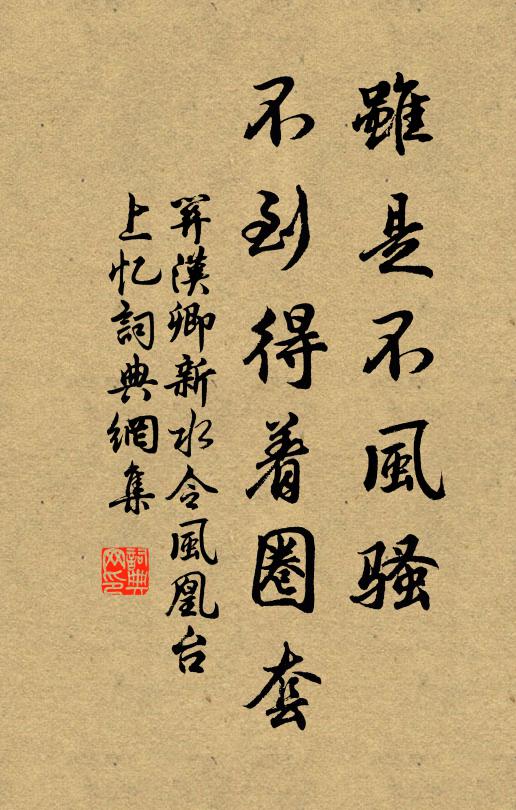 雖是不風騷
不到得着圈套
關漢卿新水令風凰台
上忆詞典網集
詞典网印